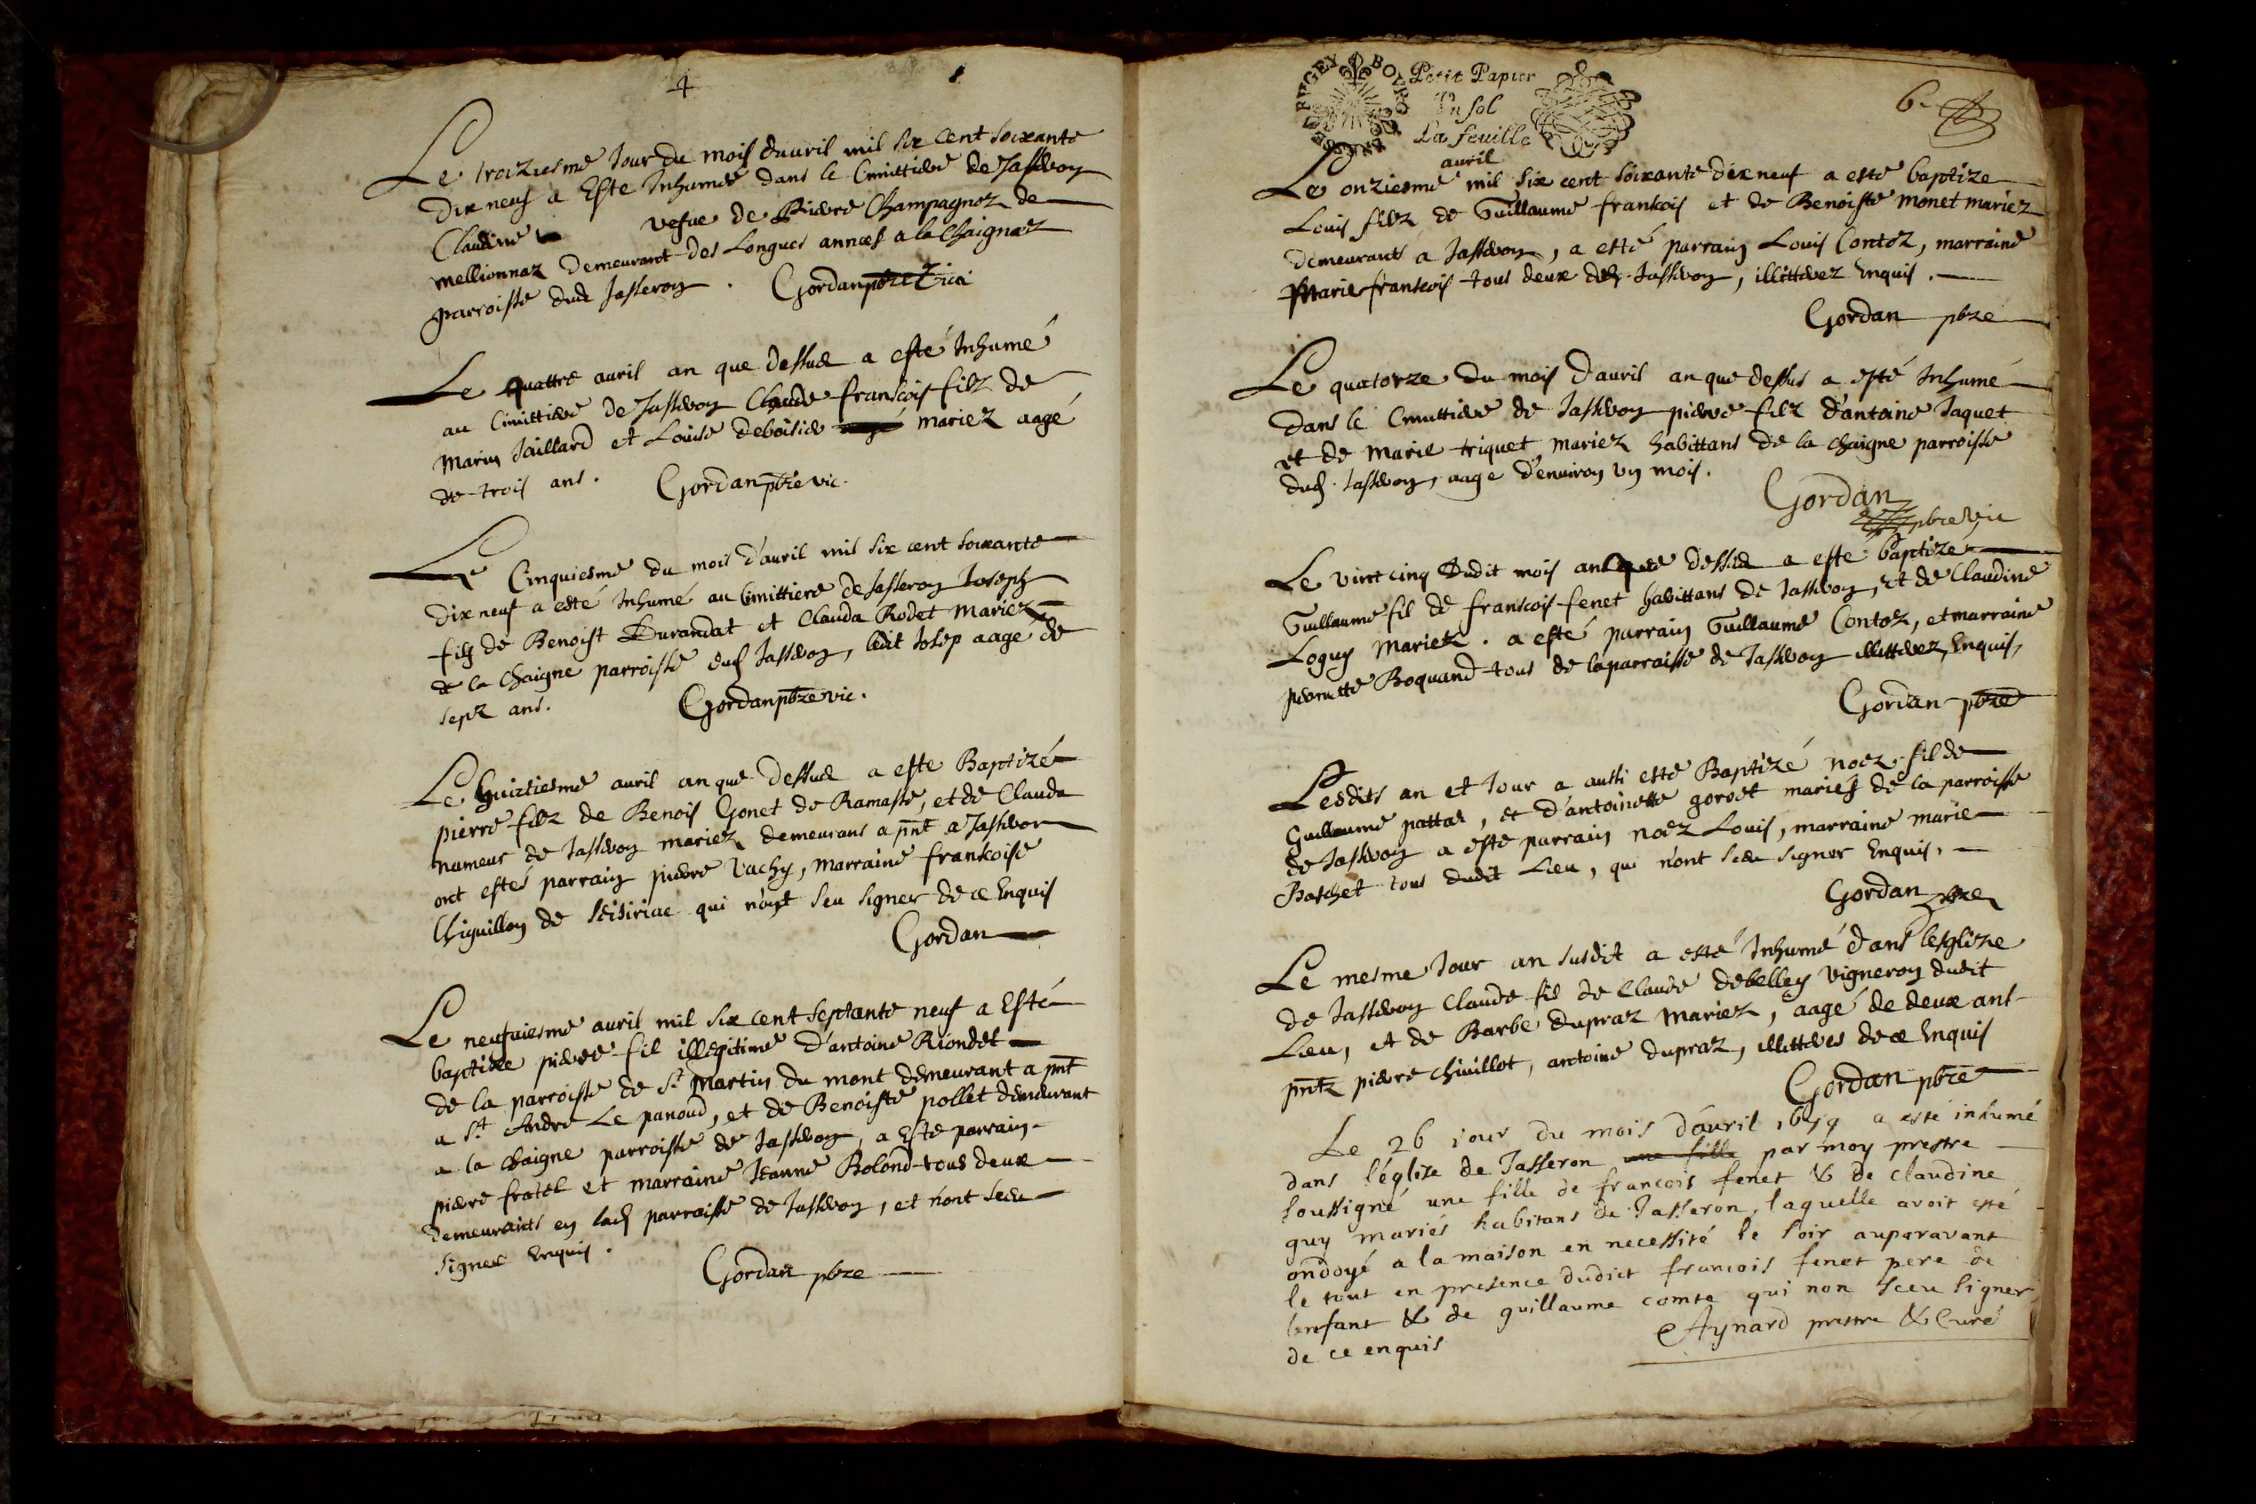 4
Le troiziesme Jour du mois davril mil six cent soixante
dix neuf a Esté Inhumée dans le Cimittiere de Jasseron
Claudine vefue de Pierre Champagnoz de
mellionnaz demeurant des Longues annœs a la Chaignaz
parroisse dud Jasseron. Gordan pbre vic
Le quattre auril an que dessus a esté Inhumé
au Cimittiere de Jasseron Claude francois filz de
Marin Jaillard et Louise deboisie mariez aagé
de trois ans. Gordan pbre vic.
Le Cinquiesme du mois d'auril mil six cent soixante
dix neuf a esté Inhumé au Cimittiere de Jasseron Joseph
filz de Benoist Durandat et Clauda Rodet Mariez
de la Chaigne parroisse dud Jasseron, ledit Josep aagé de
sepz ans. Gordan pbre vic.
Le huiztiesme auril an que dessus a este Baptizé
pierre filz de Benois Gonet de Ramasse, et de Clauda
numeur de Jasseron mariez demeurans a pnt a Jasseron
ont estés parrain pierre Vachy, marraine francoise
Chiguillon de seisiriac qui n'ont seu signer de ce Enquis
Gordan
Le neufuiesme auril mil six cent septante neuf a Esté
baptize pierre fil illegitime d'antoine Riondet
de la parroisse de St Martin du mont demeurant a pnt
a St Andre Le panoud, et de Benoiste pollet demeurant
a la Chaigne parroisse de Jasseron, a Este parrain
pierre fratel et marraine Jeanne Bolond tous deux
demeurants en lad parroisse de Jasseron, et n'ont seeu
signer Enquis.
Gordan pbre
BRESSE BVGEY BOVRG
Petit Papier
Un sol
La feuille
6
auril
Le onziesme mil six cent soixante dix neuf a esté baptize
Louis filz de Guillaume francois et de Benoiste monet mariez
demeurants a Jasseron, a esté parrain Louis Contoz, marraine
Marie francois tous deux dud Jasseron, illitterez Enquis.
Gordan pbre
Le quatorze du mois d'auril an que dessus a esté Inhumé
dans le Cimittiere de Jasseron pierre filz d'antoine Jaquet
et de Marie triquet mariez habittans de la chaigne parroisse
dud Jasseron, aage d'environ un mois.
Gordan
pbre vic
Le vint cinq dudit mois an que dessus a esté baptize
Guillaume fil de francois fenet habittans de Jasseron, et de Claudine
Loguy Mariez. a esté parrain Guillaume Contoz, et marraine
pernette Boquand tous de la parraisse de Jasseron illitterez Enquis,
Gordan pbre
Lesdits an et Jour a aussi esté Baptizé noez fil de
Guillaume pattas, et d'antoinette goroet mariez de la parroisse
de Jasseron a este parrain noez Louis, marraine marie
Baschet tous dudit Lieu, qui n'ont seeu signer Enquis,
Gordan pbre
Le mesme Jour an susdit a esté Inhumé dans lesglize
de Jasseron Claude fil de Claude debelley vigneron dudit
Lieu, et de Barbe dupraz Mariez, aagé de deux ans
pntz pierre chivillot, antoine dupraz, illitteres de ce Enquis
Gordan pbre
Le 26 iour du mois d'auril 1679 a esté inhumé
dans l'église de Jasseron une fille par moy prestre
soussigné une fille de francois fenet & de claudine
guy mariés habitans de Jasseron, laquelle avoit esté
ondoyé a la maison en necessité le soir auparavant
le tout en presence dudict francois fenet pere de
lenfant & de guillaume comte qui non sceu signer
de ce enquis Aynard prestre & Curé